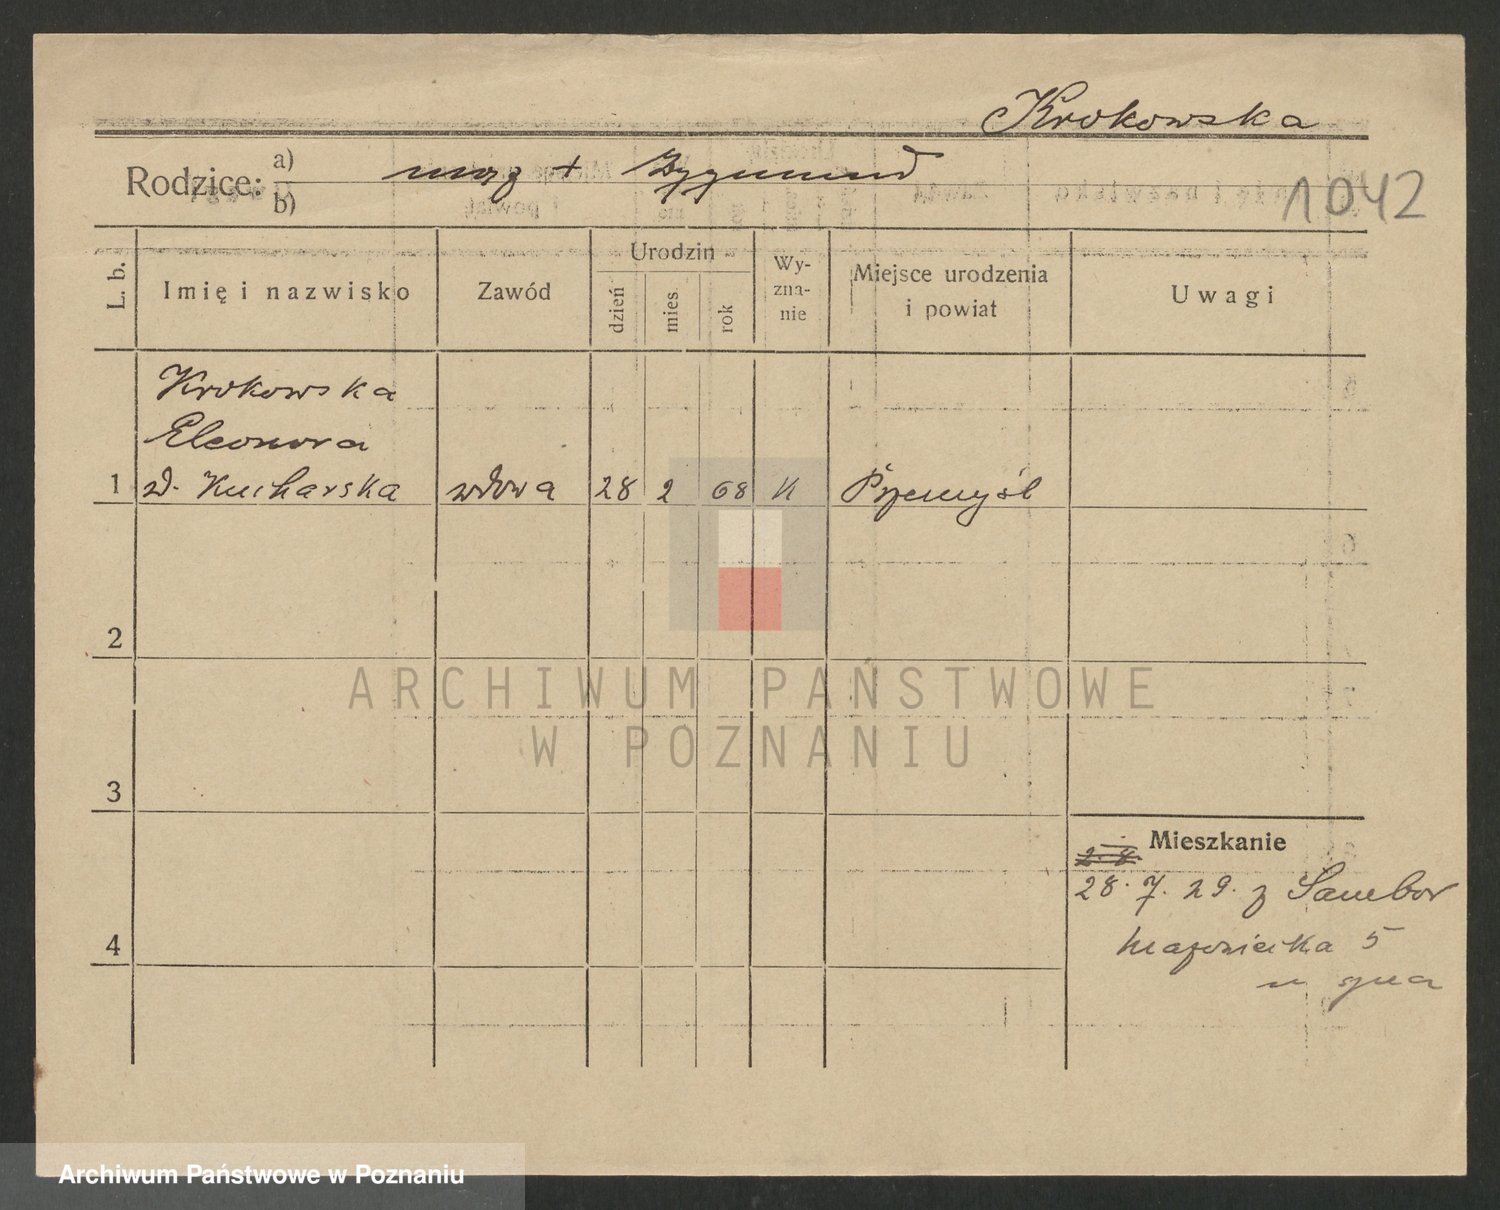 Krokowska
Rodzice: a) mąż + Zygmund
b)
1042
L. b.
Imię i nazwisko
Zawód
Urodzin
dzień
mies
rok
Wy-
zna-
nie
Miejsce urodzenia
i powiat
Uwagi
Krokowska
Eleonora
1 zd. Kucharska wdowa 28 2 68 k Przemyśl
2
ARCHIWUM PAŃSTWOWE
W POZNANIU
3
Mieszkanie
28. 7. 29. z Sambor
4 Mazowiecka 5
Archiwum Państwowe w Poznaniu